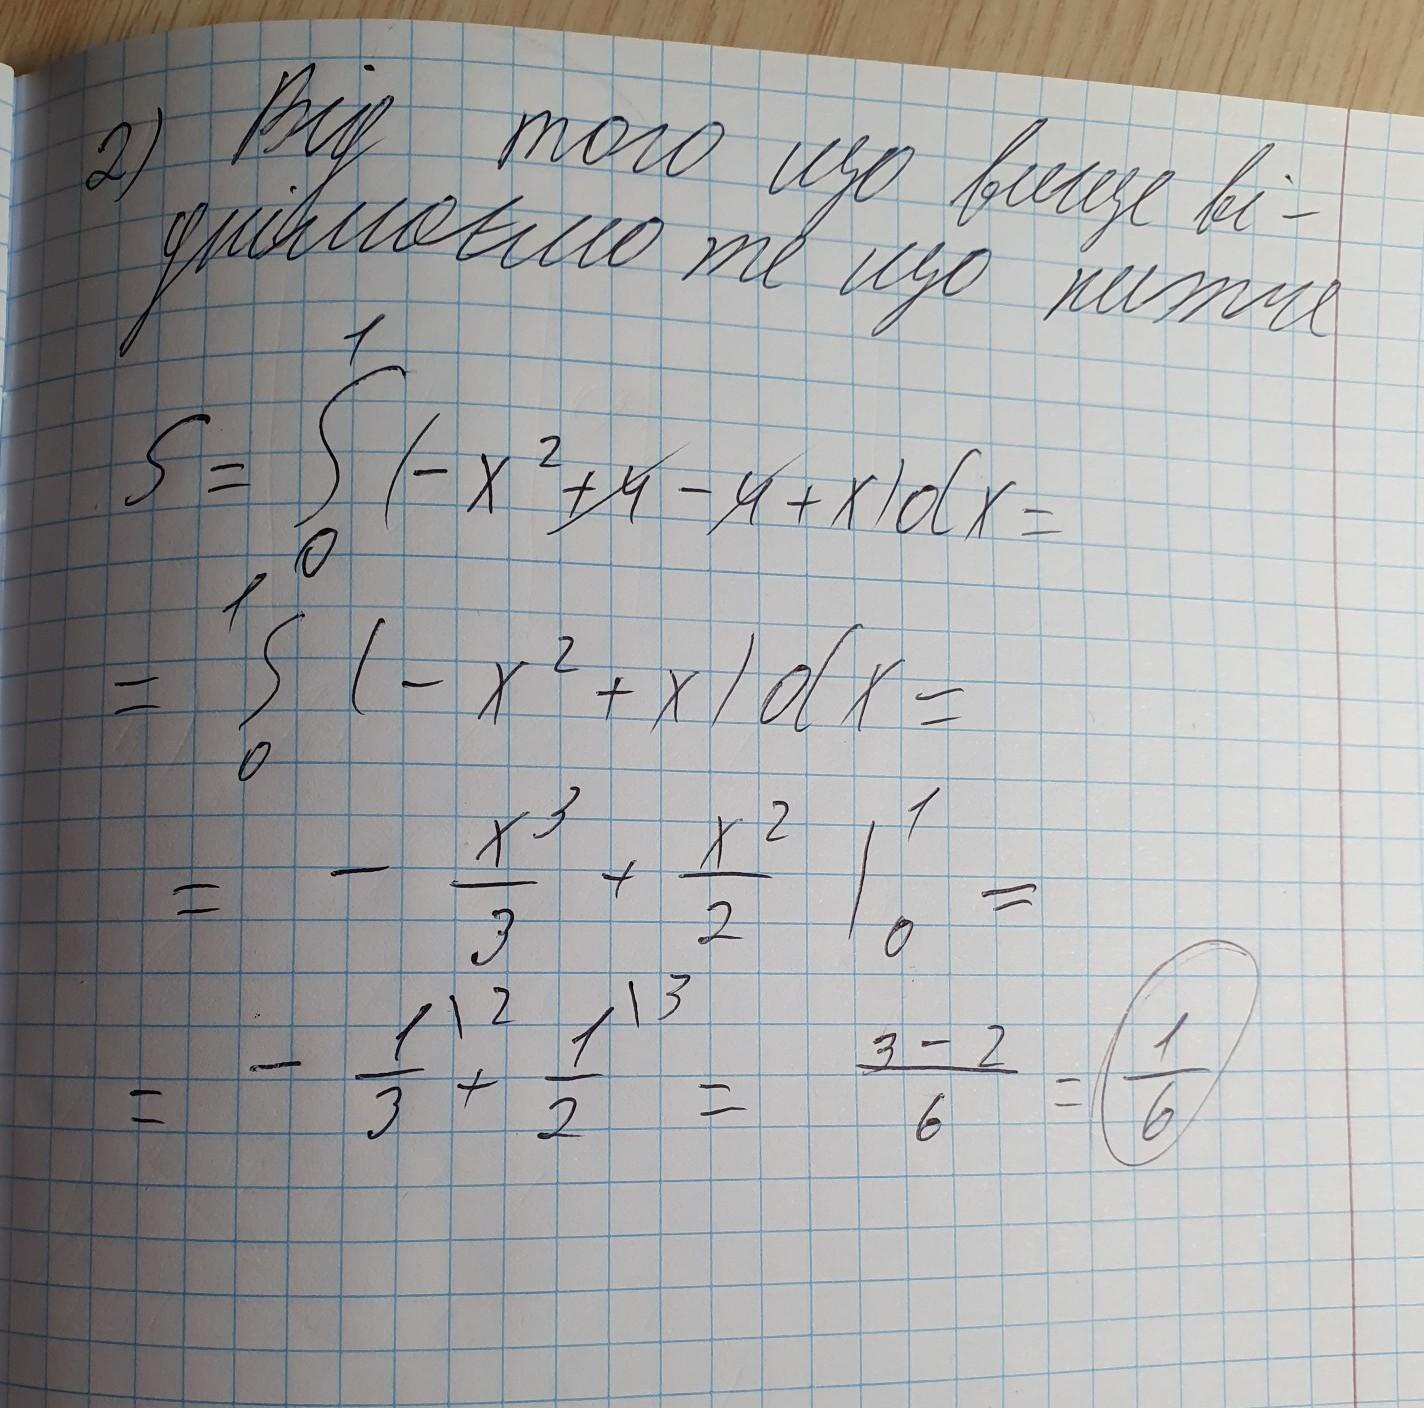 2) Від того що вище ві-
днімаємо те що нижче
S = ∫₀¹ (- x² + 4 - 4 + x) dx =
= ∫₀¹ (- x² + x) dx =
= - x³/3 + x²/2 |₀¹ =
= - 1\²/3 + 1\³/2 = (3 - 2)/6 = 1/6